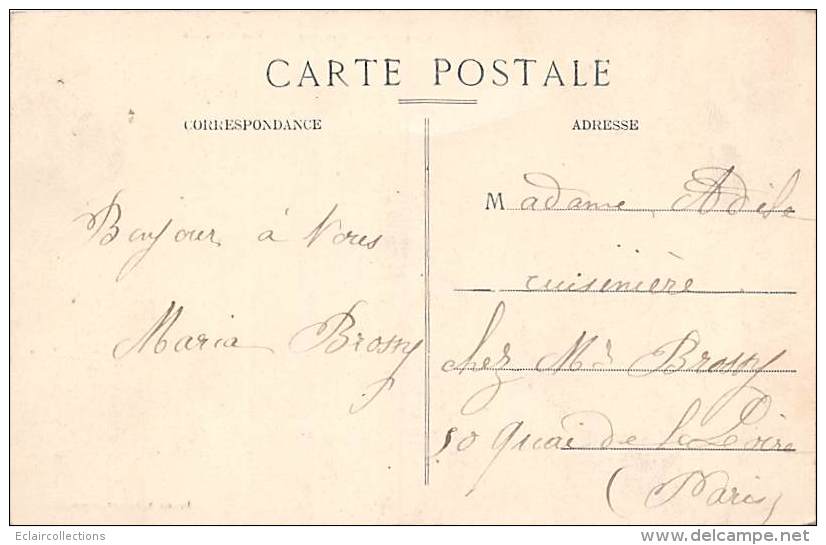 CARTE POSTALE
CORRESPONDANCE
ADRESSE
Bonjour à Vous
Maria Brossy
Madame Adèle
cuisinière
chez Mr Brossy
50 Quai de la Loire
(Paris)
Eclaircollections
http://www.delcampe.net